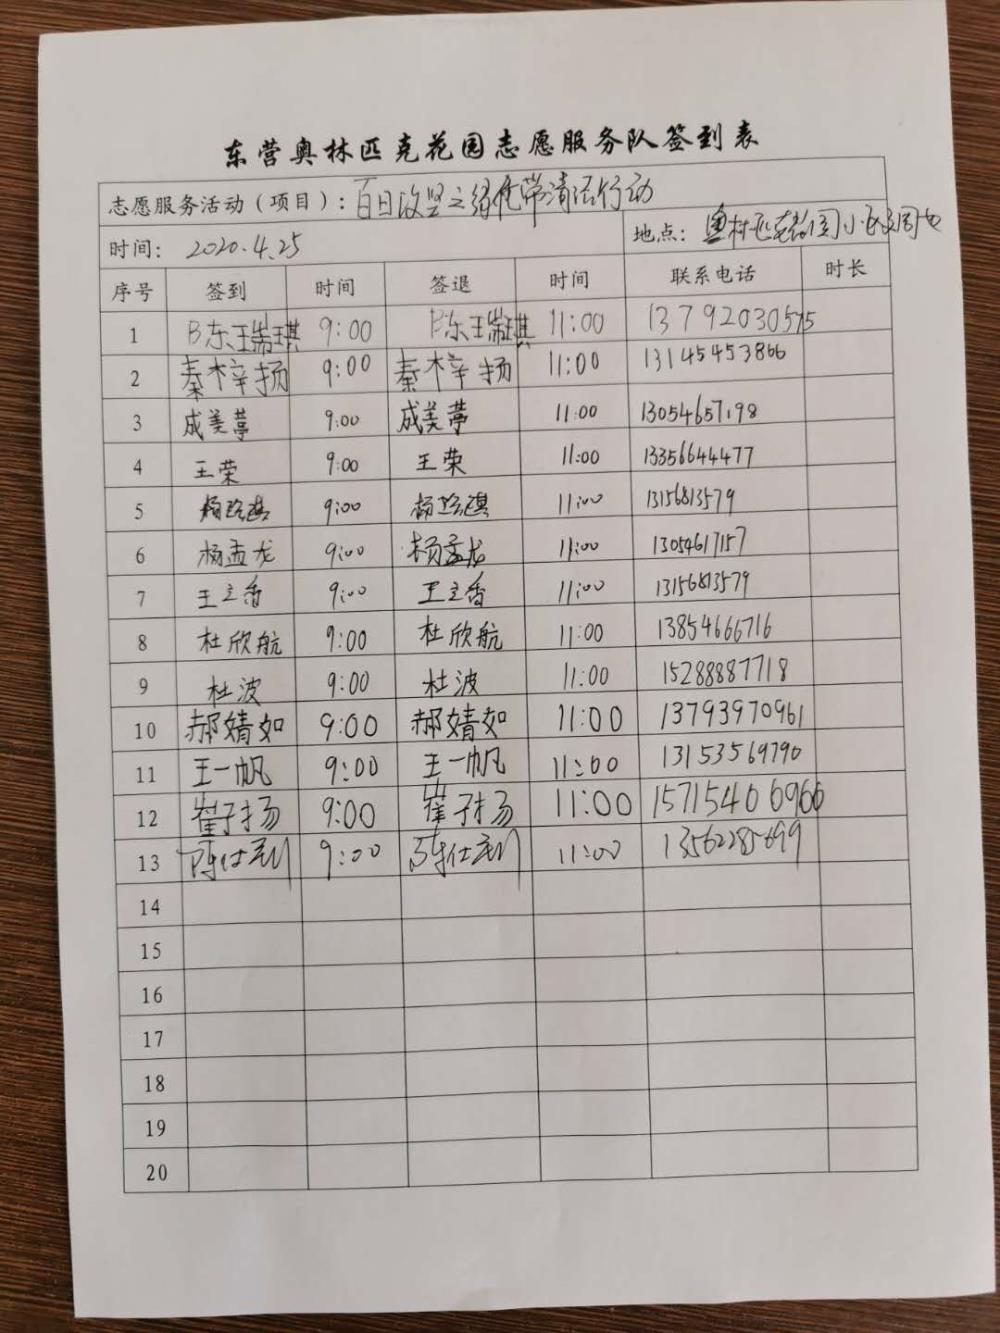 东营奥林匹克花园志愿服务队签到表
志愿服务活动(项目):百日攻坚之绿化带清洁行动
时间: 2020.4.25 地点: 奥林匹克花园小区周
序号 签到 时间 签退 时间 联系电话 时长
1 陈瑞琪 9:00 陈瑞琪 11:00 13792030515
2 秦梓扬 9:00 秦梓扬 11:00 13145453866
3 成美葶 9:00 成美葶 11:00 13054657198
4 王荣 9:00 王荣 11:00 13356644477
5 9:00 11:00 13156813579
6 杨孟龙 9:00 杨孟龙 11:00 13054617157
7 王立香 9:00 王立香 11:00 13156813579
8 杜欣航 9:00 杜欣航 11:00 13854666716
9 杜波 9:00 杜波 11:00 15288887718
10 郝婧如 9:00 郝婧如 11:00 13793970961
11 王一帆 9:00 王一帆 11:00 13153569790
12 崔子扬 9:00 崔子扬 11:00 15715406966
13 9:00 11:00
14
15
16
17
18
19
20